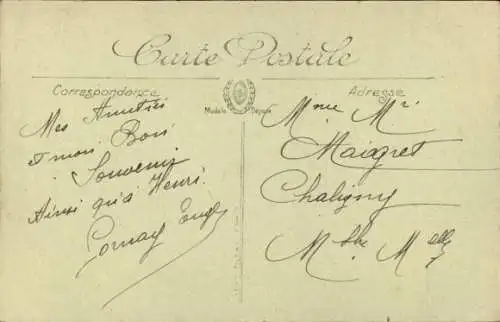 Carte Postale
Correspondance
Adresse
Modèle Déposé
Mes Amitiés
et mon Bon
Souvenir
Ainsi qu'à Henri
Cornay
Mme Mr
Maigret
Chaligny
Mthe Mlle